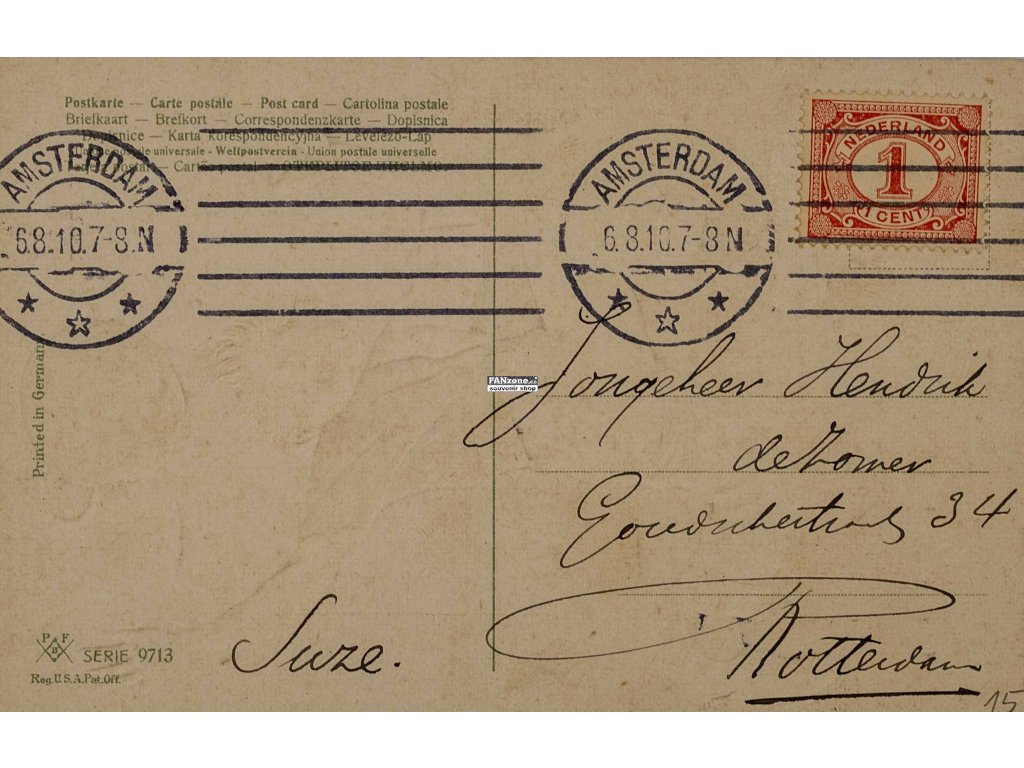 Postkarte — Carte postale — Post card — Cartolina postale
Briefkaart — Brefkort — Correspondenzkarte — Dopisnica
Dopisnice — Karta korespondencyjna — Levelező-Lap
postale universale - Weltpostverein - Union postale universelle
AMSTERDAM
6.8.10.7-8.N
AMSTERDAM
6.8.10.7-8N
NEDERLAND
1
1 CENT
Printed in German
FANzone.cz
souvenir shop
Jongeheer Hendrik
de Zomer
Goudschestraat 34
Rotterdam
15
Suze.
P F B
SERIE 9713
Reg.U.S.A.Pat.Off.